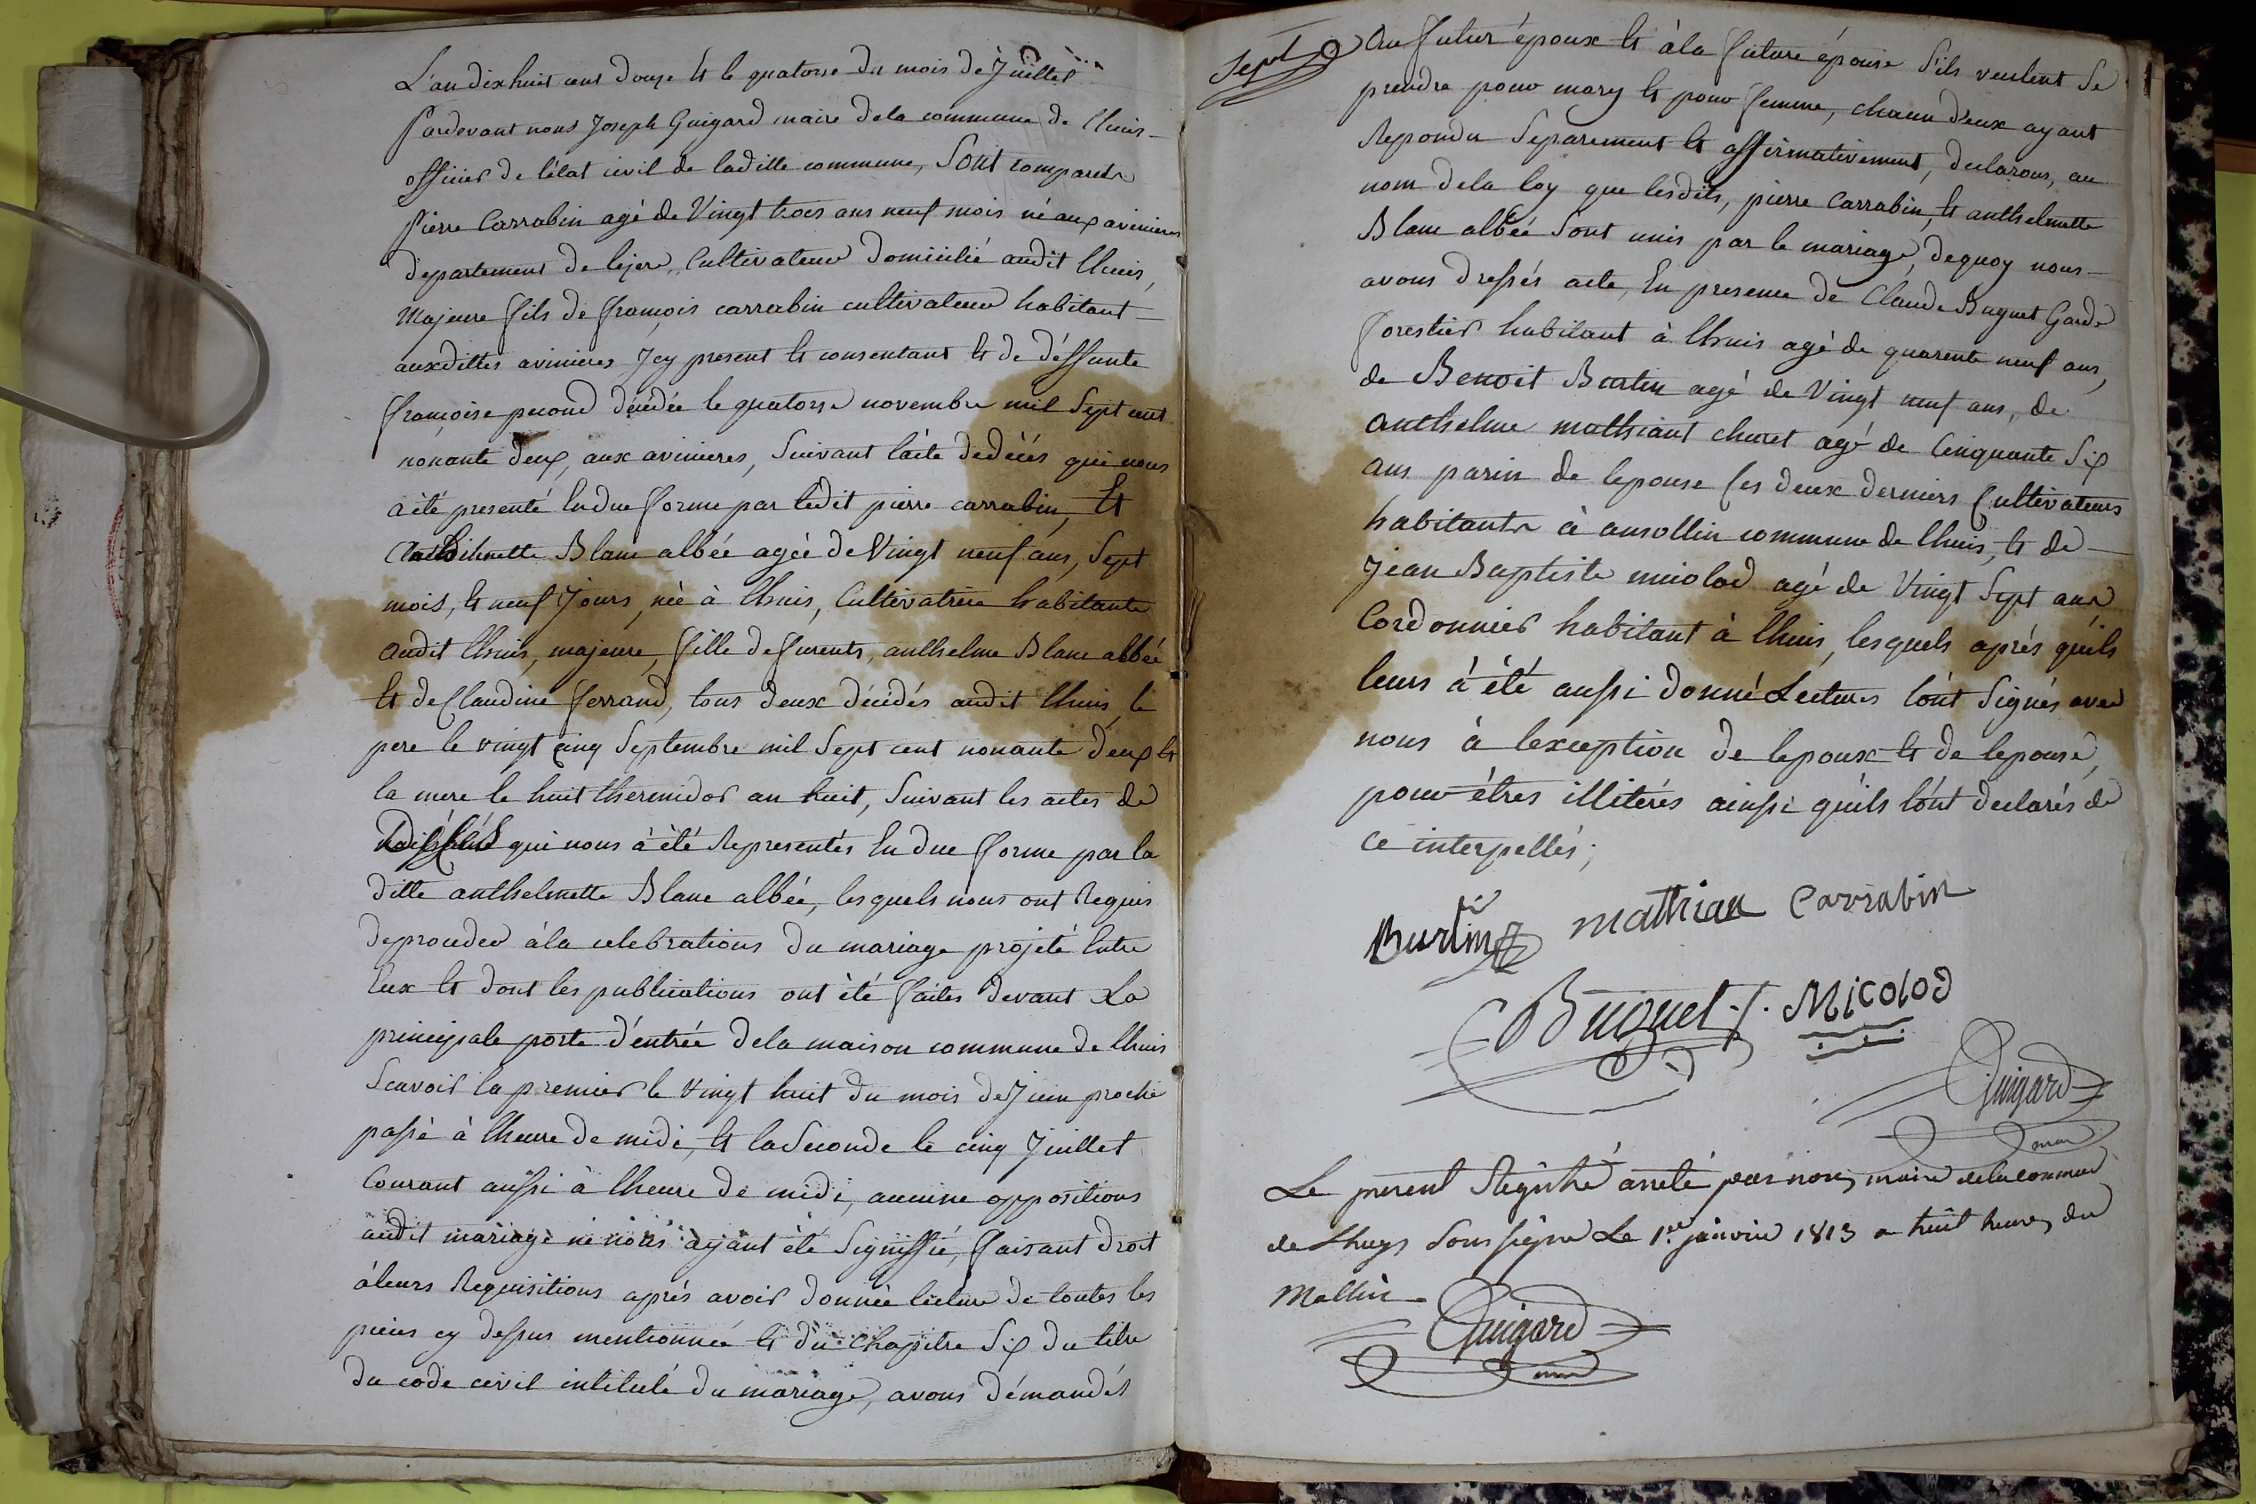 L'an dix huit cent douze et le quatorse du mois de Juillet
Pardevant nous Joseph Guigard maire de la commune de lhuis
officier de l'état civil de laditte commune, Sont comparus
Pierre Carrabin agé de Vingt trois ans neuf mois né aux avinieres
departement de lizere, Cultivateur domicilié audit lhuis,
Majeure fils de françois carrabin cultivateur habitant
auxdittes avinieres Jcy present et consentant et de déffunte
françoise décédée le quatorse novembre mil Sept cent
nonante deux, aux avinieres, Suivant l'acte dedécés qui nous
a été presenté En due forme par ledit pierre carrabin, et
Blanc albée agée de Vingt neuf ans, Sept
mois, et neuf Jours, née à lhuis, Cultivatrice habitante
audit lhuis, majeure, fille defurents, anthelme Blanc albée
et de Claudine ferrand, tous deux décédés audit lhuis, le
pere le vingt cinq Septembre mil Sept cent nonante deux et
la mere le huit thermidor an huit, Suivant les actes de
qui nous à été Representés En due forme par la
ditte anthelmette Blanc albée, lesquels nous ont Requis
de proceder à la celebrations du mariage projeté Entre
Eux et dont les publications ont été faites devant La
principale porte d'entrée dela maison commune de lhuis
Scavoir la premier le Vingt huit du mois de Juin proche
passé à lheure de midi, et la Seconde le cinq Juillet
Courant aussi à lheure de midi, aucune oppositions
audit mariage ne nous ayant été Signiffié, faisant droit
à leurs Requisitions aprés avoir donnée lecture de toutes les
pieces cy dessus mentionnée et du Chapitre Six du titre
du code civil intitulé du mariage, avons démandés
Sept
Au futur époux et à la future épouse S'ils veulent Se
prendre pour mary et pour femme, chacun d'eux ayant
Repondu Separement et affirmativement, declarons, au
nom dela loy que lesdits, pierre Carrabin, et anthelmette
Blanc albée Sont unis par le mariage, dequoy nous
avons dressés acte, En presence de Claude Buguet Garde
forestier habitant à lhuis agé de quarente neuf ans,
de Benoit Burtin agé de Vingt neuf ans, de
anthelme mathiant agé de Cinquante Six
ans parin de lepouse les deux derniers Cultivateurs
habitants à ansollin commune de lhuis, et de
Jean Baptiste micolod agé de Vingt Sept ans
Cordonnier habitant à lhuis, lesquels aprés qu'ils
leurs à été aussi donné Lectures lont Signés avec
nous à lexception de lepoux et de lepouse,
pour êtres illiterés ainsi qu'ils l'ont declarés de
ce interpellés;
Burtin mathian Carrabin
Buguet J. Micolod
Guigard
maire
Le present Registre arreté par nous maire de la commune
de Lhuys Soussigné Le 1er janvier 1813 a huit heures du
Mattin
Guigard
maire